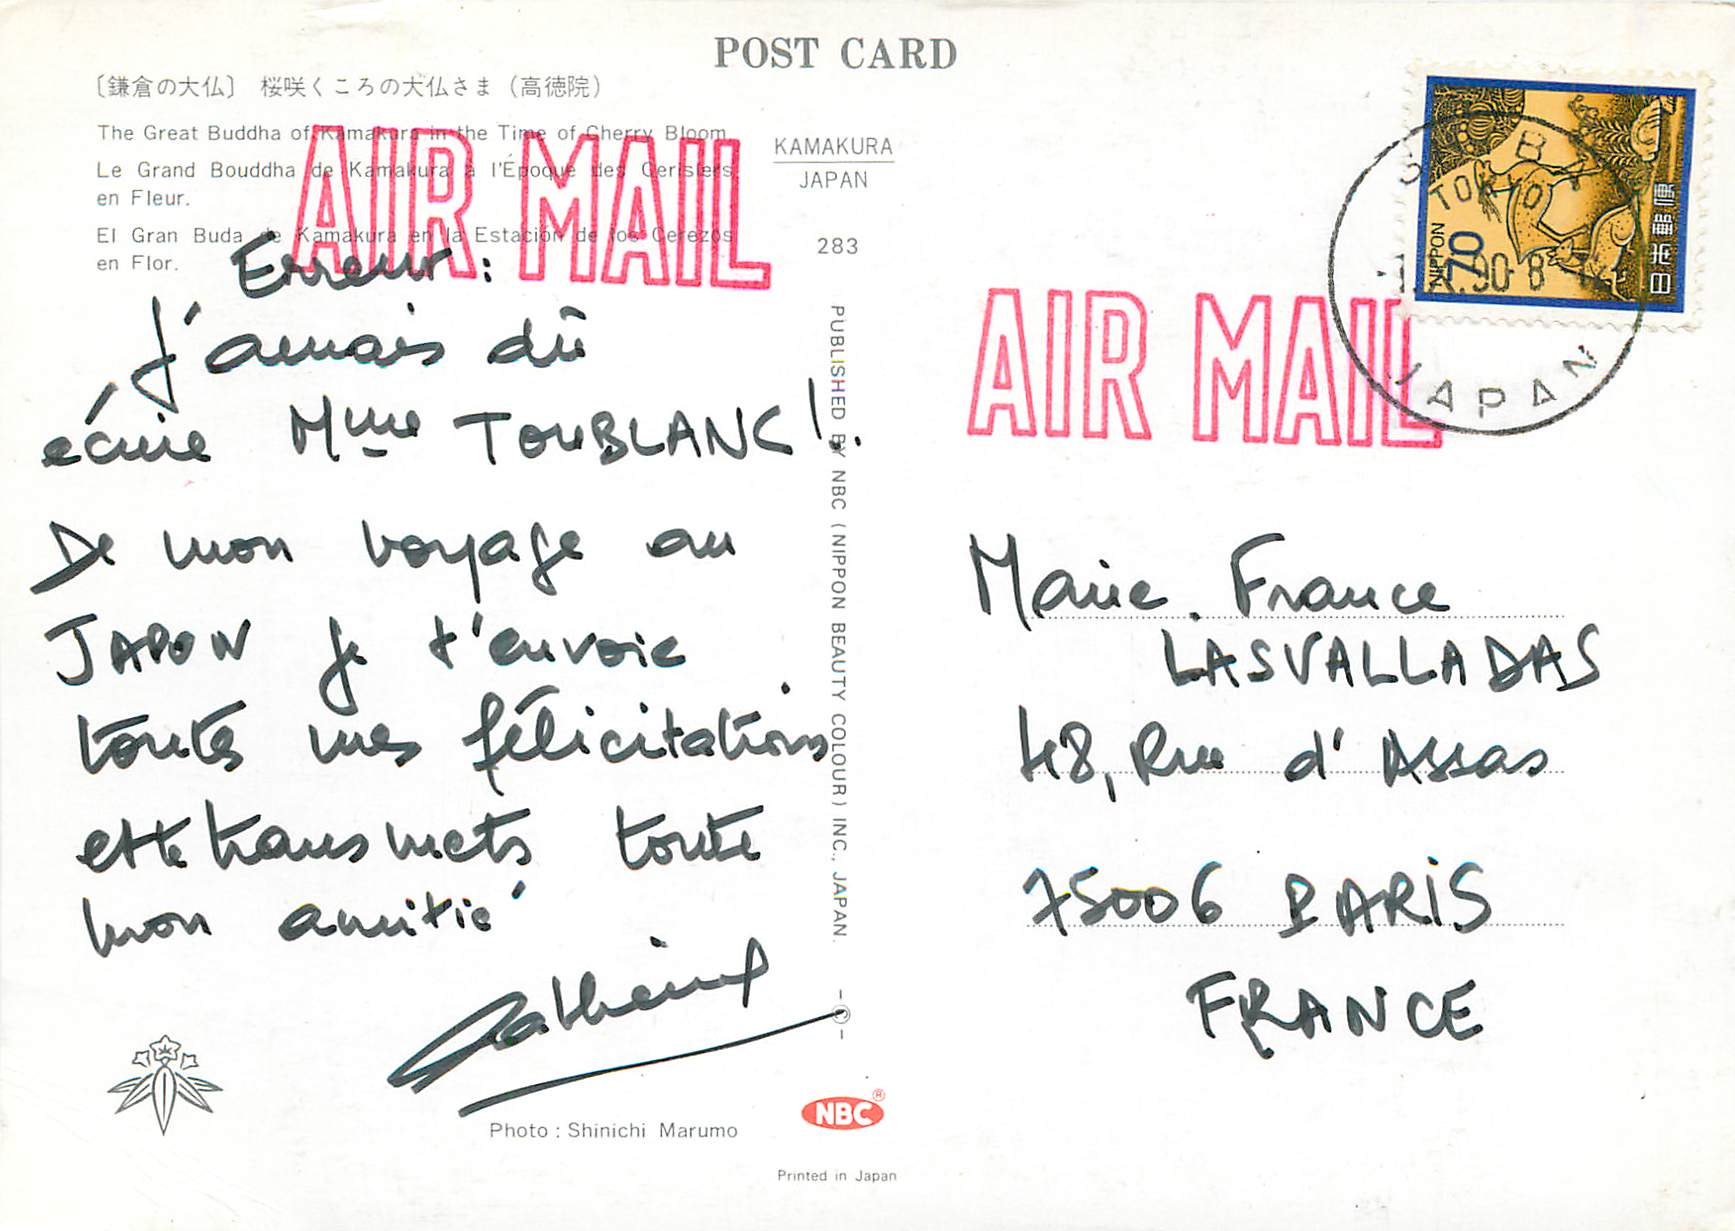 POST CARD
〔鎌倉の大仏〕 桜咲くころの大仏さま（高徳院）
The Great Buddha of Kamakura in the Time of Cherry Bloom
Le Grand Bouddha de Kamakura à l'Époque des Cerisiers
en Fleur.
El Gran Buda de Kamakura en la Estación de los Cerezos
en Flor.
KAMAKURA
JAPAN
283
AIR MAIL
Erreur :
J'amais dû
écrire Mme TOUBLANC !..
De mon voyage au
JAPON je t'envoie
toutes mes félicitations
et te transmets toute
mon amitié
Catherine
Photo : Shinichi Marumo
PUBLISHED BY NBC (NIPPON BEAUTY COLOUR) INC., JAPAN.
-©-
NBC®
Printed in Japan
AIR MAIL
TOKYO
90-8
JAPAN
NIPPON
70
日本郵便
Marie. France
LASVALLADAS
48, Rue d'Assas
75006 PARIS
FRANCE